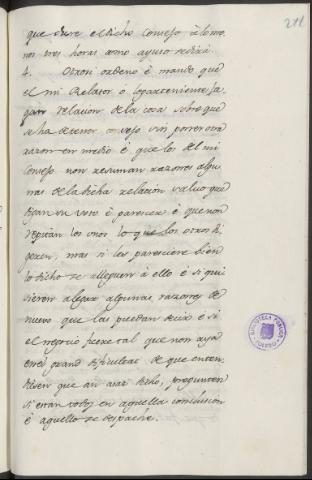 211
que dure el dicho Consejo à lo me
nos tres horas como ayuso se dirá.
4. Otrosi ordeno è mando que
el mi Relator ò loparteniente fa
gan relacion de la cosa sobre que
se ha de tener consejo sin poner otra
razon en medio è que los del mi
Consejo non resuman razones algu
nas de la dicha relacion salvo que
digan su voto è parescer è que non
repitan los unos lo que los otros di
geren, mas si les paresciere bien
lo dicho se alleguen à ello è si qui
sieren alegar algunas razones de
nuevo que las puedan decir è si
el negocio fuere tal que non aya
en el grand dificultad de que enten
dieren que an asaz dicho, pregunten
si estan todos en aquella conclusion
è aquello se despache.
BIBLIOTECA PUBLICA
TOLEDO